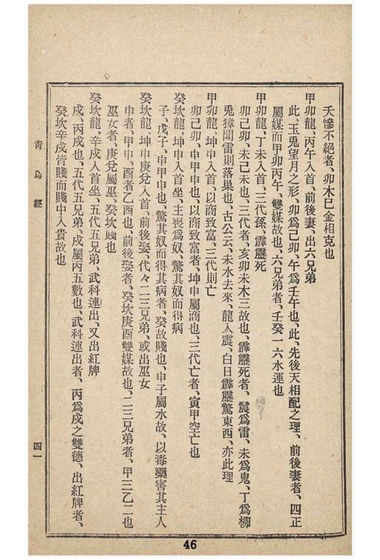 夭慘不絕者、卯木巳金相克也
甲卯龍、丙午入首、前後妻、出六兄弟
此、玉兎望月之形、卯爲己卯、午爲壬午也、此、先後天相配之理、前後妻者、四正
屬媒而甲卯丙午、雙媒故也、六兄弟者、壬癸一六水運也
甲卯龍、丁未入首、三代孫、霹靂死
卯己卯、未己未也、三代者、亥卯未木三故也、霹靂死者、震爲雷、未爲鬼、丁爲柳
兎獐聞雷則落巢也、古公云、未水去來、龍入震、白日霹靂驚東西、亦此理
甲卯龍、坤申入首、以商致富、三代則亡
卯己卯、申甲申也、以商致富者、坤申屬商也、三代亡者、寅甲空亡也
癸坎龍、坤申入首坐、主喪爲奴、驚其奴而得病
子、戊子、申甲申也、驚其奴而得其病者、癸故賤也、申子屬水故、以毒藥害其主人
癸坎龍、坤申庚兌入首、前後娶、代々二三兄弟、或出巫女
申者、甲申、酉者乙酉也、前後娶者、癸坎庚酉雙媒故也、二三兄弟者、甲三乙二也
巫女者、庚兌屬巫、癸坎賤也
癸坎龍、辛戌入首坐、五代五兄弟、武科連出、又出紅牌
戌、丙戌也、五代五兄弟、戌屬丙五數也、武科連出者、丙爲戌之雙德、出紅牌者、
癸坎辛戌皆賤而賤中入貴故也
靑烏經
四一
46